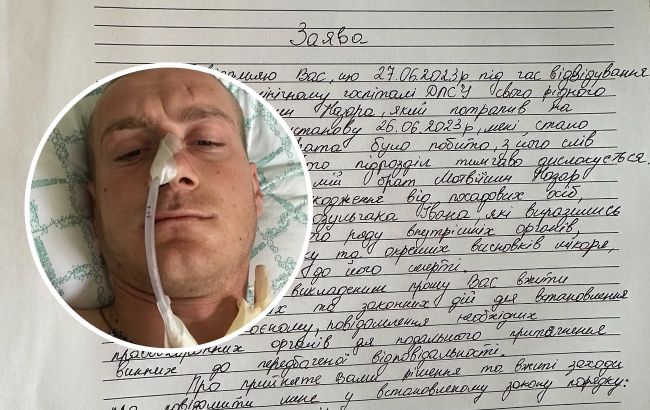 Заява
Вас, що 27.06.2023р під час відвідування
госпіталі ДПСУ свого рідного
Назара, який потрапив на
установу 26.06.2023р, мені стало
брата було побито, з його слів
підрозділ тимчасово дислокується.
мій брат Мотвійчин Назар
від посадових осіб,
Івана які виразились
ряду внутрішніх органів,
та окремих висновків лікаря,
до його смерті.
викладеним прошу Вас вжити
та законних дій для встановлення
повідомлення необхідних
органів для подальшого притягнення
винних до передбаченої відповідальності.
Про прийняте Вами рішення та вжиті заходи
повідомити мене у встановленому закону порядку: